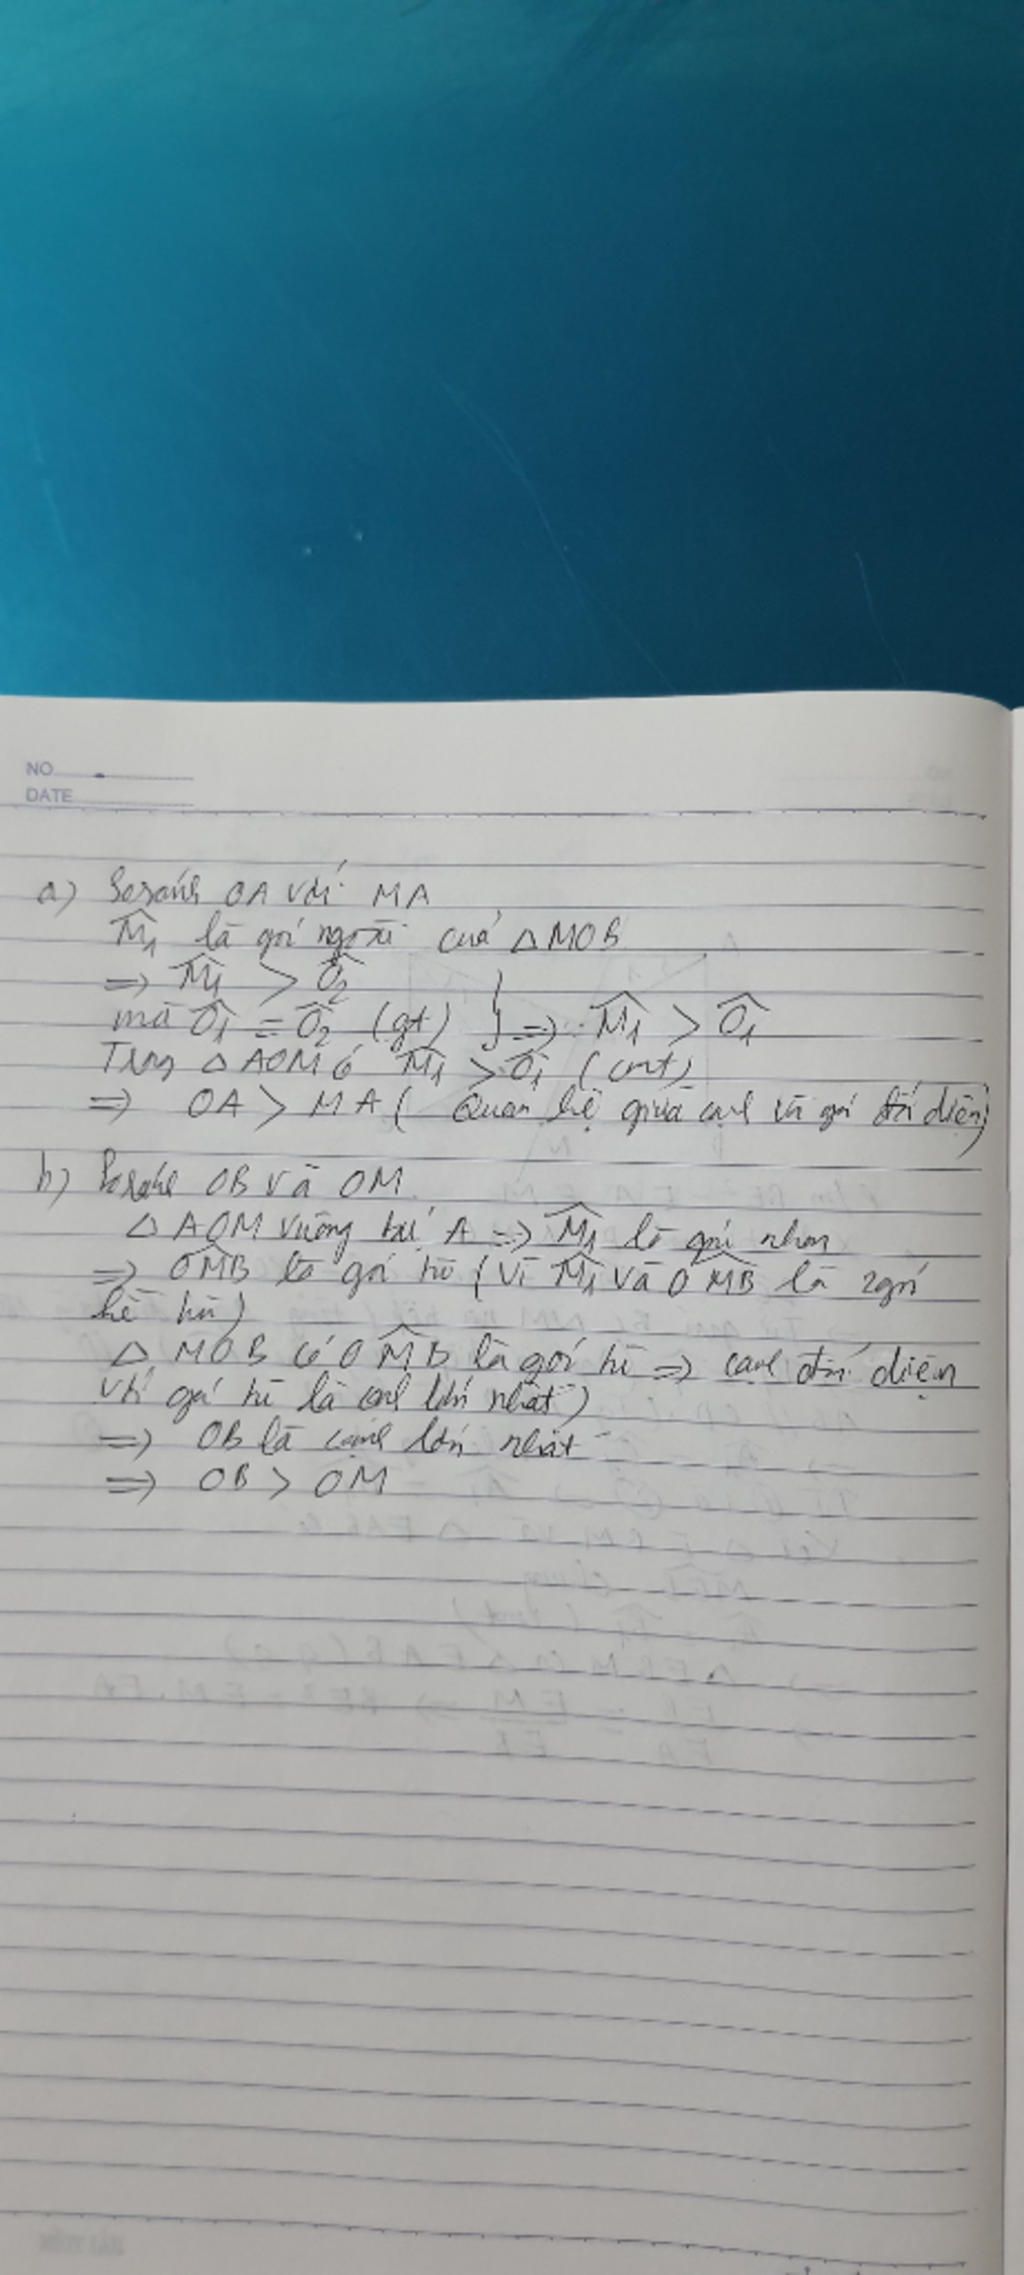 NO
DATE
a) So sánh OA với MA
M̂₁ là góc ngoài của △MOB
=> M̂₁ > Ô₂
mà Ô₁ = Ô₂ (gt) } => M̂₁ > Ô₁
Trong △AOM có M̂₁ > Ô₁ (cmt)
=> OA > MA ( Quan hệ giữa cạnh và góc đối diện)
b) So sánh OB và OM
△ AOM vuông tại A => M̂₁ là góc nhọn
=> OM̂B là góc tù (vì M̂₁ và OM̂B là 2 góc
kề bù)
△ MOB có OM̂B là góc tù => cạnh đối diện
với góc tù là cạnh lớn nhất)
=> OB là cạnh lớn nhất
=> OB > OM